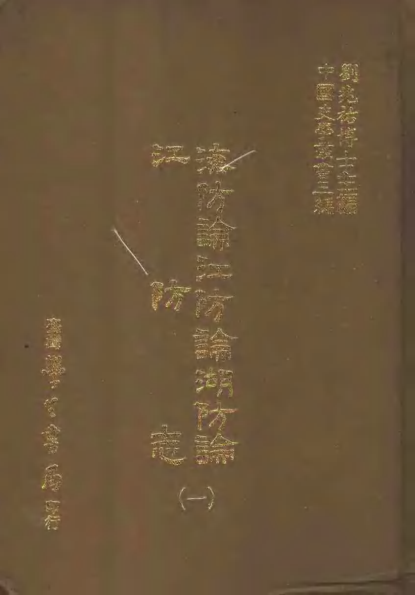 劉兆祐博士主編
中國史學叢書三編
海防論江防論湖防論
江防志
(一)
臺灣學生書局印行